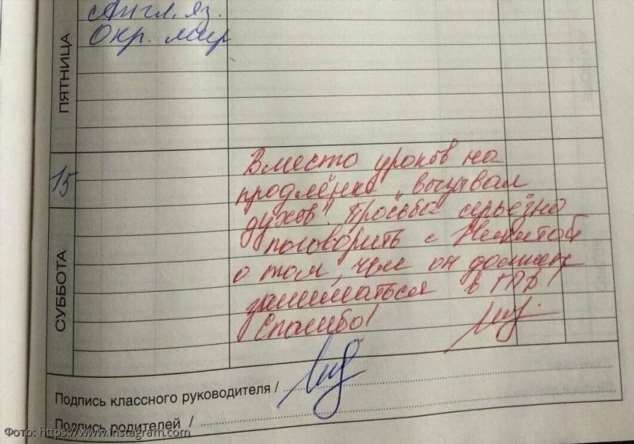 Англ. яз.
Окр. мир
ПЯТНИЦА
15
СУББОТА
Вместо уроков на
продлёнке "вызывал
духов"! Просьба серьёзно
поговорить с Никитой
о том, чем он должен
заниматься в ГПД!
Спасибо!
Подпись классного руководителя /
Подпись родителей /
Фото: https://www.instagram.com